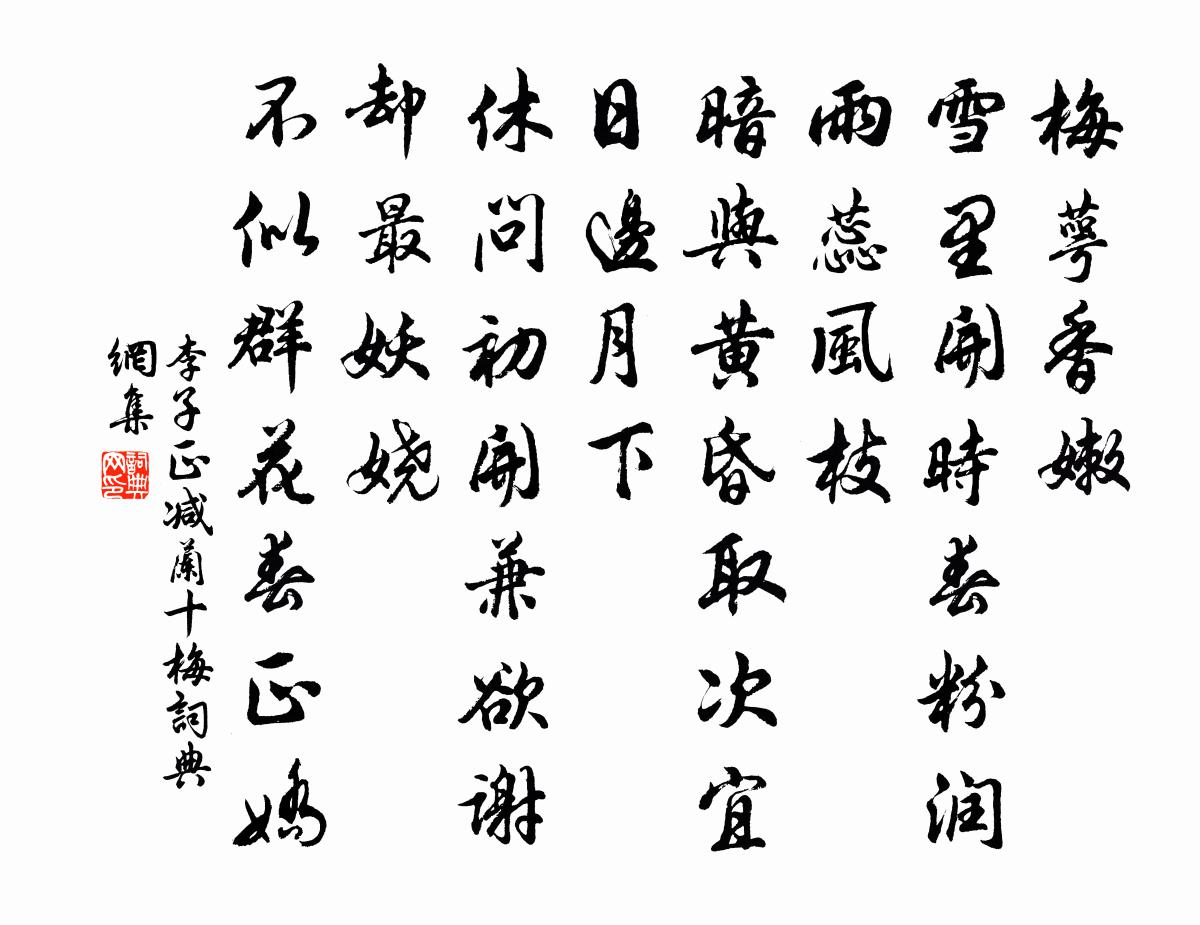 梅萼香嫩
雪里開時春粉润
雨蕊風枝
暗與黄昏取次宜
日邊月下
休問初開兼欲谢
却最妖娆
不似群花春正嬌
李子正减蘭十梅詞典
網集
詞典网印